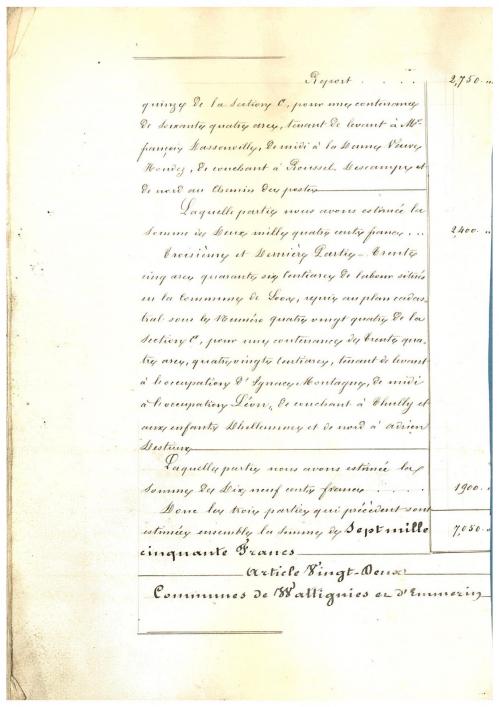 Report . . . . 2,750 "
quinze de la Section C, pour une contenance
de soixante quatre ares, tenant de levant à Mr
françois de midi à la Dame Veuve
de couchant à Roussel Descamps et
de nord au Chemin des postes
Laquelle partie nous avons estimée la
somme de Deux mille quatre cents francs . . 2,400 "
Troisième et Dernière Partie - Trente
cinq ares quarante six centiares de labour situés
en la Commune de Loos, repris au plan cadas
tral sous le Numéro quatre vingt quatre de la
Section C, pour une contenance de trente qua
tre ares, quatre vingts centiares, tenant de levant
à l'occupation d'Ignace Montagne, de midi
à l'occupation Léon, de couchant à Thully et
aux enfants et de nord à adrien
Destieux
Laquelle partie nous avons estimée la
somme de Dix neuf cents francs . . . . . 1900 "
Donc les trois parties qui précèdent sont
estimées ensemble la somme de Sept mille 7,050 "
cinquante Francs
Article Vingt-Deux
Communes de Wattignies et d'Emmerin